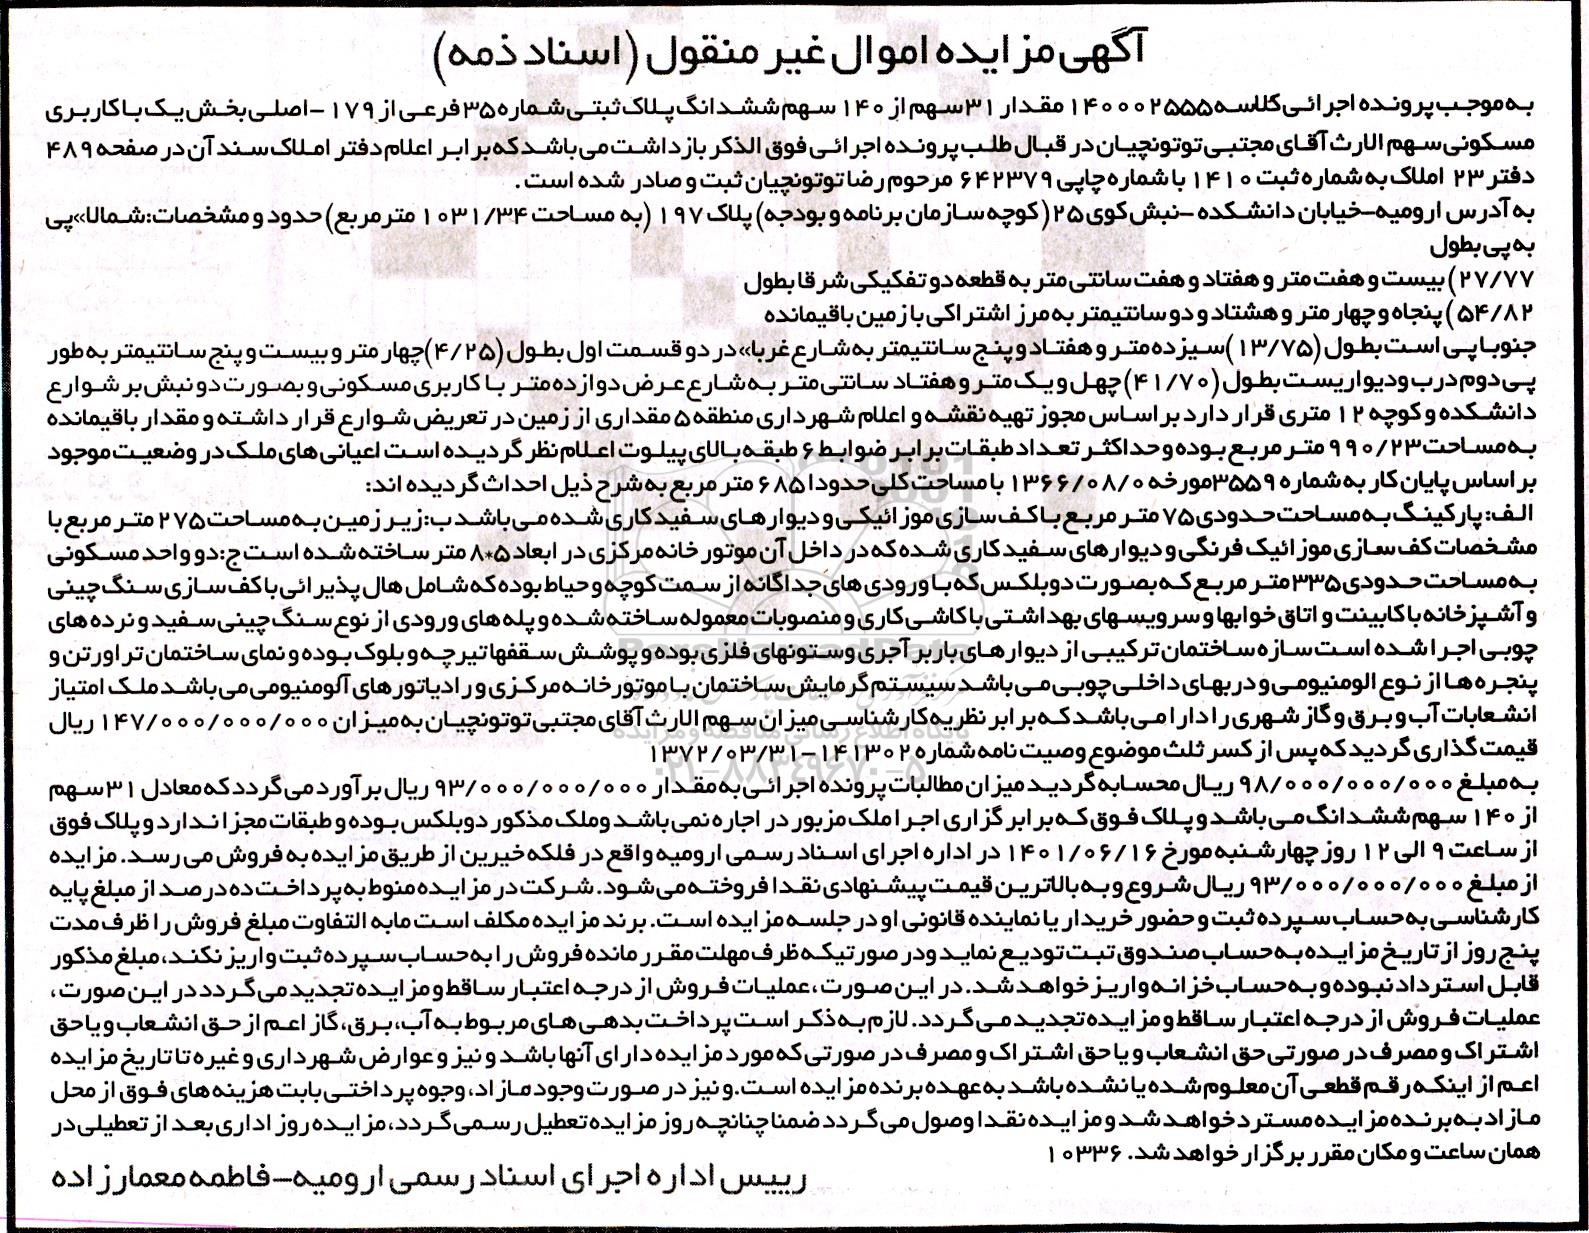 آگهی مزایده اموال غیر منقول (اسناد ذمه)
به موجب پرونده اجرائی کلاسه ۱۴۰۰۰۲۵۵۵ مقدار ۳۱ سهم از ۱۴۰ سهم ششدانگ پلاک ثبتی شماره ۳۵ فرعی از ۱۷۹ -اصلی بخش یک با کاربری
مسکونی سهم الارث آقای مجتبی توتونچیان در قبال طلب پرونده اجرائی فوق الذکر بازداشت می باشد که برابر اعلام دفتر املاک سند آن در صفحه ۴۸۹
دفتر ۲۳ املاک به شماره ثبت ۱۴۱۰ با شماره چاپی ۶۴۲۳۷۹ مرحوم رضا توتونچیان ثبت و صادر شده است.
به آدرس ارومیه-خیابان دانشکده -نبش کوی ۲۵ (کوچه سازمان برنامه و بودجه) پلاک ۱۹۷ (به مساحت ۱۰۳۱/۳۴ متر مربع) حدود و مشخصات: شمالا» پی
به پی بطول
۲۷/۷۷) بیست و هفت متر و هفتاد و هفت سانتی متر به قطعه دو تفکیکی شرقا بطول
۵۴/۸۲) پنجاه و چهار متر و هشتاد و دو سانتیمتر به مرز اشتراکی با زمین باقیمانده
جنوبا پی است بطول (۱۳/۷۵) سیزده متر و هفتاد و پنج سانتیمتر به شارع غربا» در دو قسمت اول بطول (۴/۲۵) چهار متر و بیست و پنج سانتیمتر به طور
پی دوم درب و دیواریست بطول (۴۱/۷۰) چهل و یک متر و هفتاد سانتی متر به شارع عرض دوازده متر با کاربری مسکونی و بصورت دو نبش بر شوارع
دانشکده و کوچه ۱۲ متری قرار دارد بر اساس مجوز تهیه نقشه و اعلام شهرداری منطقه ۵ مقداری از زمین در تعریض شوارع قرار داشته و مقدار باقیمانده
به مساحت ۹۹۰/۲۳ متر مربع بوده و حداکثر تعداد طبقات برابر ضوابط ۶ طبقه بالای پیلوت اعلام نظر گردیده است اعیانی های ملک در وضعیت موجود
بر اساس پایان کار به شماره ۳۵۵۹ مورخه ۱۳۶۶/۰۸/۰ با مساحت کلی حدودا ۶۸۵ متر مربع به شرح ذیل احداث گردیده اند:
الف: پارکینگ به مساحت حدودی ۷۵ متر مربع با کف سازی موزائیکی و دیوارهای سفید کاری شده می باشد ب: زیر زمین به مساحت ۲۷۵ متر مربع با
مشخصات کف سازی موزائیک فرنگی و دیوارهای سفید کاری شده که در داخل آن موتور خانه مرکزی در ابعاد ۵*۸ متر ساخته شده است ج: دو واحد مسکونی
به مساحت حدودی ۳۳۵ متر مربع که بصورت دوبلکس که با ورودی های جداگانه از سمت کوچه و حیاط بوده که شامل هال پذیرائی با کف سازی سنگ چینی
و آشپزخانه با کابینت و اتاق خوابها و سرویسهای بهداشتی با کاشی کاری و منصوبات معموله ساخته شده و پله های ورودی از نوع سنگ چینی سفید و نرده های
چوبی اجرا شده است سازه ساختمان ترکیبی از دیوارهای باربر آجری و ستونهای فلزی بوده و پوشش سقفها تیرچه و بلوک بوده و نمای ساختمان تراورتن و
پنجره ها از نوع الومنیومی و دربهای داخلی چوبی می باشد سیستم گرمایش ساختمان با موتور خانه مرکزی و رادیاتورهای آلومنیومی می باشد ملک امتیاز
انشعابات آب و برق و گاز شهری را دارا می باشد که برابر نظریه کارشناسی میزان سهم الارث آقای مجتبی توتونچیان به میزان ۱۴۷/۰۰۰/۰۰۰/۰۰۰ ریال
قیمت گذاری گردید که پس از کسر ثلث موضوع وصیت نامه شماره ۱۴۱۳۰۲-۱۳۷۲/۰۳/۳۱
به مبلغ ۹۸/۰۰۰/۰۰۰/۰۰۰ ریال محسابه گردید میزان مطالبات پرونده اجرائی به مقدار ۹۳/۰۰۰/۰۰۰/۰۰۰ ریال برآورد می گردد که معادل ۳۱ سهم
از ۱۴۰ سهم ششدانگ می باشد و پلاک فوق که برابر گزاری اجرا ملک مزبور در اجاره نمی باشد و ملک مذکور دوبلکس بوده و طبقات مجزا ندارد و پلاک فوق
از ساعت ۹ الی ۱۲ روز چهارشنبه مورخ ۱۴۰۱/۰۶/۱۶ در اداره اجرای اسناد رسمی ارومیه واقع در فلکه خیرین از طریق مزایده به فروش می رسد. مزایده
از مبلغ ۹۳/۰۰۰/۰۰۰/۰۰۰ ریال شروع و به بالاترین قیمت پیشنهادی نقدا فروخته می شود. شرکت در مزایده منوط به پرداخت ده درصد از مبلغ پایه
کارشناسی به حساب سپرده ثبت و حضور خریدار یا نماینده قانونی او در جلسه مزایده است. برنده مزایده مکلف است مابه التفاوت مبلغ فروش را ظرف مدت
پنج روز از تاریخ مزایده به حساب صندوق ثبت تودیع نماید و در صورتیکه ظرف مهلت مقرر مانده فروش را به حساب سپرده ثبت واریز نکند، مبلغ مذکور
قابل استرداد نبوده و به حساب خزانه واریز خواهد شد. در این صورت، عملیات فروش از درجه اعتبار ساقط و مزایده تجدید می گردد در این صورت،
عملیات فروش از درجه اعتبار ساقط و مزایده تجدید می گردد. لازم به ذکر است پرداخت بدهی های مربوط به آب، برق، گاز اعم از حق انشعاب و یا حق
اشتراک و مصرف در صورتی حق انشعاب و یا حق اشتراک و مصرف در صورتی که مورد مزایده دارای آنها باشد و نیز و عوارض شهرداری و غیره تا تاریخ مزایده
اعم از اینکه رقم قطعی آن معلوم شده یا نشده باشد به عهده برنده مزایده است. و نیز در صورت وجود مازاد، وجوه پرداختی بابت هزینه های فوق از محل
مازاد به برنده مزایده مسترد خواهد شد و مزایده نقدا وصول می گردد ضمنا چنانچه روز مزایده تعطیل رسمی گردد، مزایده روز اداری بعد از تعطیلی در
همان ساعت و مکان مقرر برگزار خواهد شد. ۱۰۳۳۶
رییس اداره اجرای اسناد رسمی ارومیه-فاطمه معمارزاده
پایگاه اطلاع رسانی مناقصه و مزایده
۰۲۱-۸۸۳۴۹۶۷۰-۵